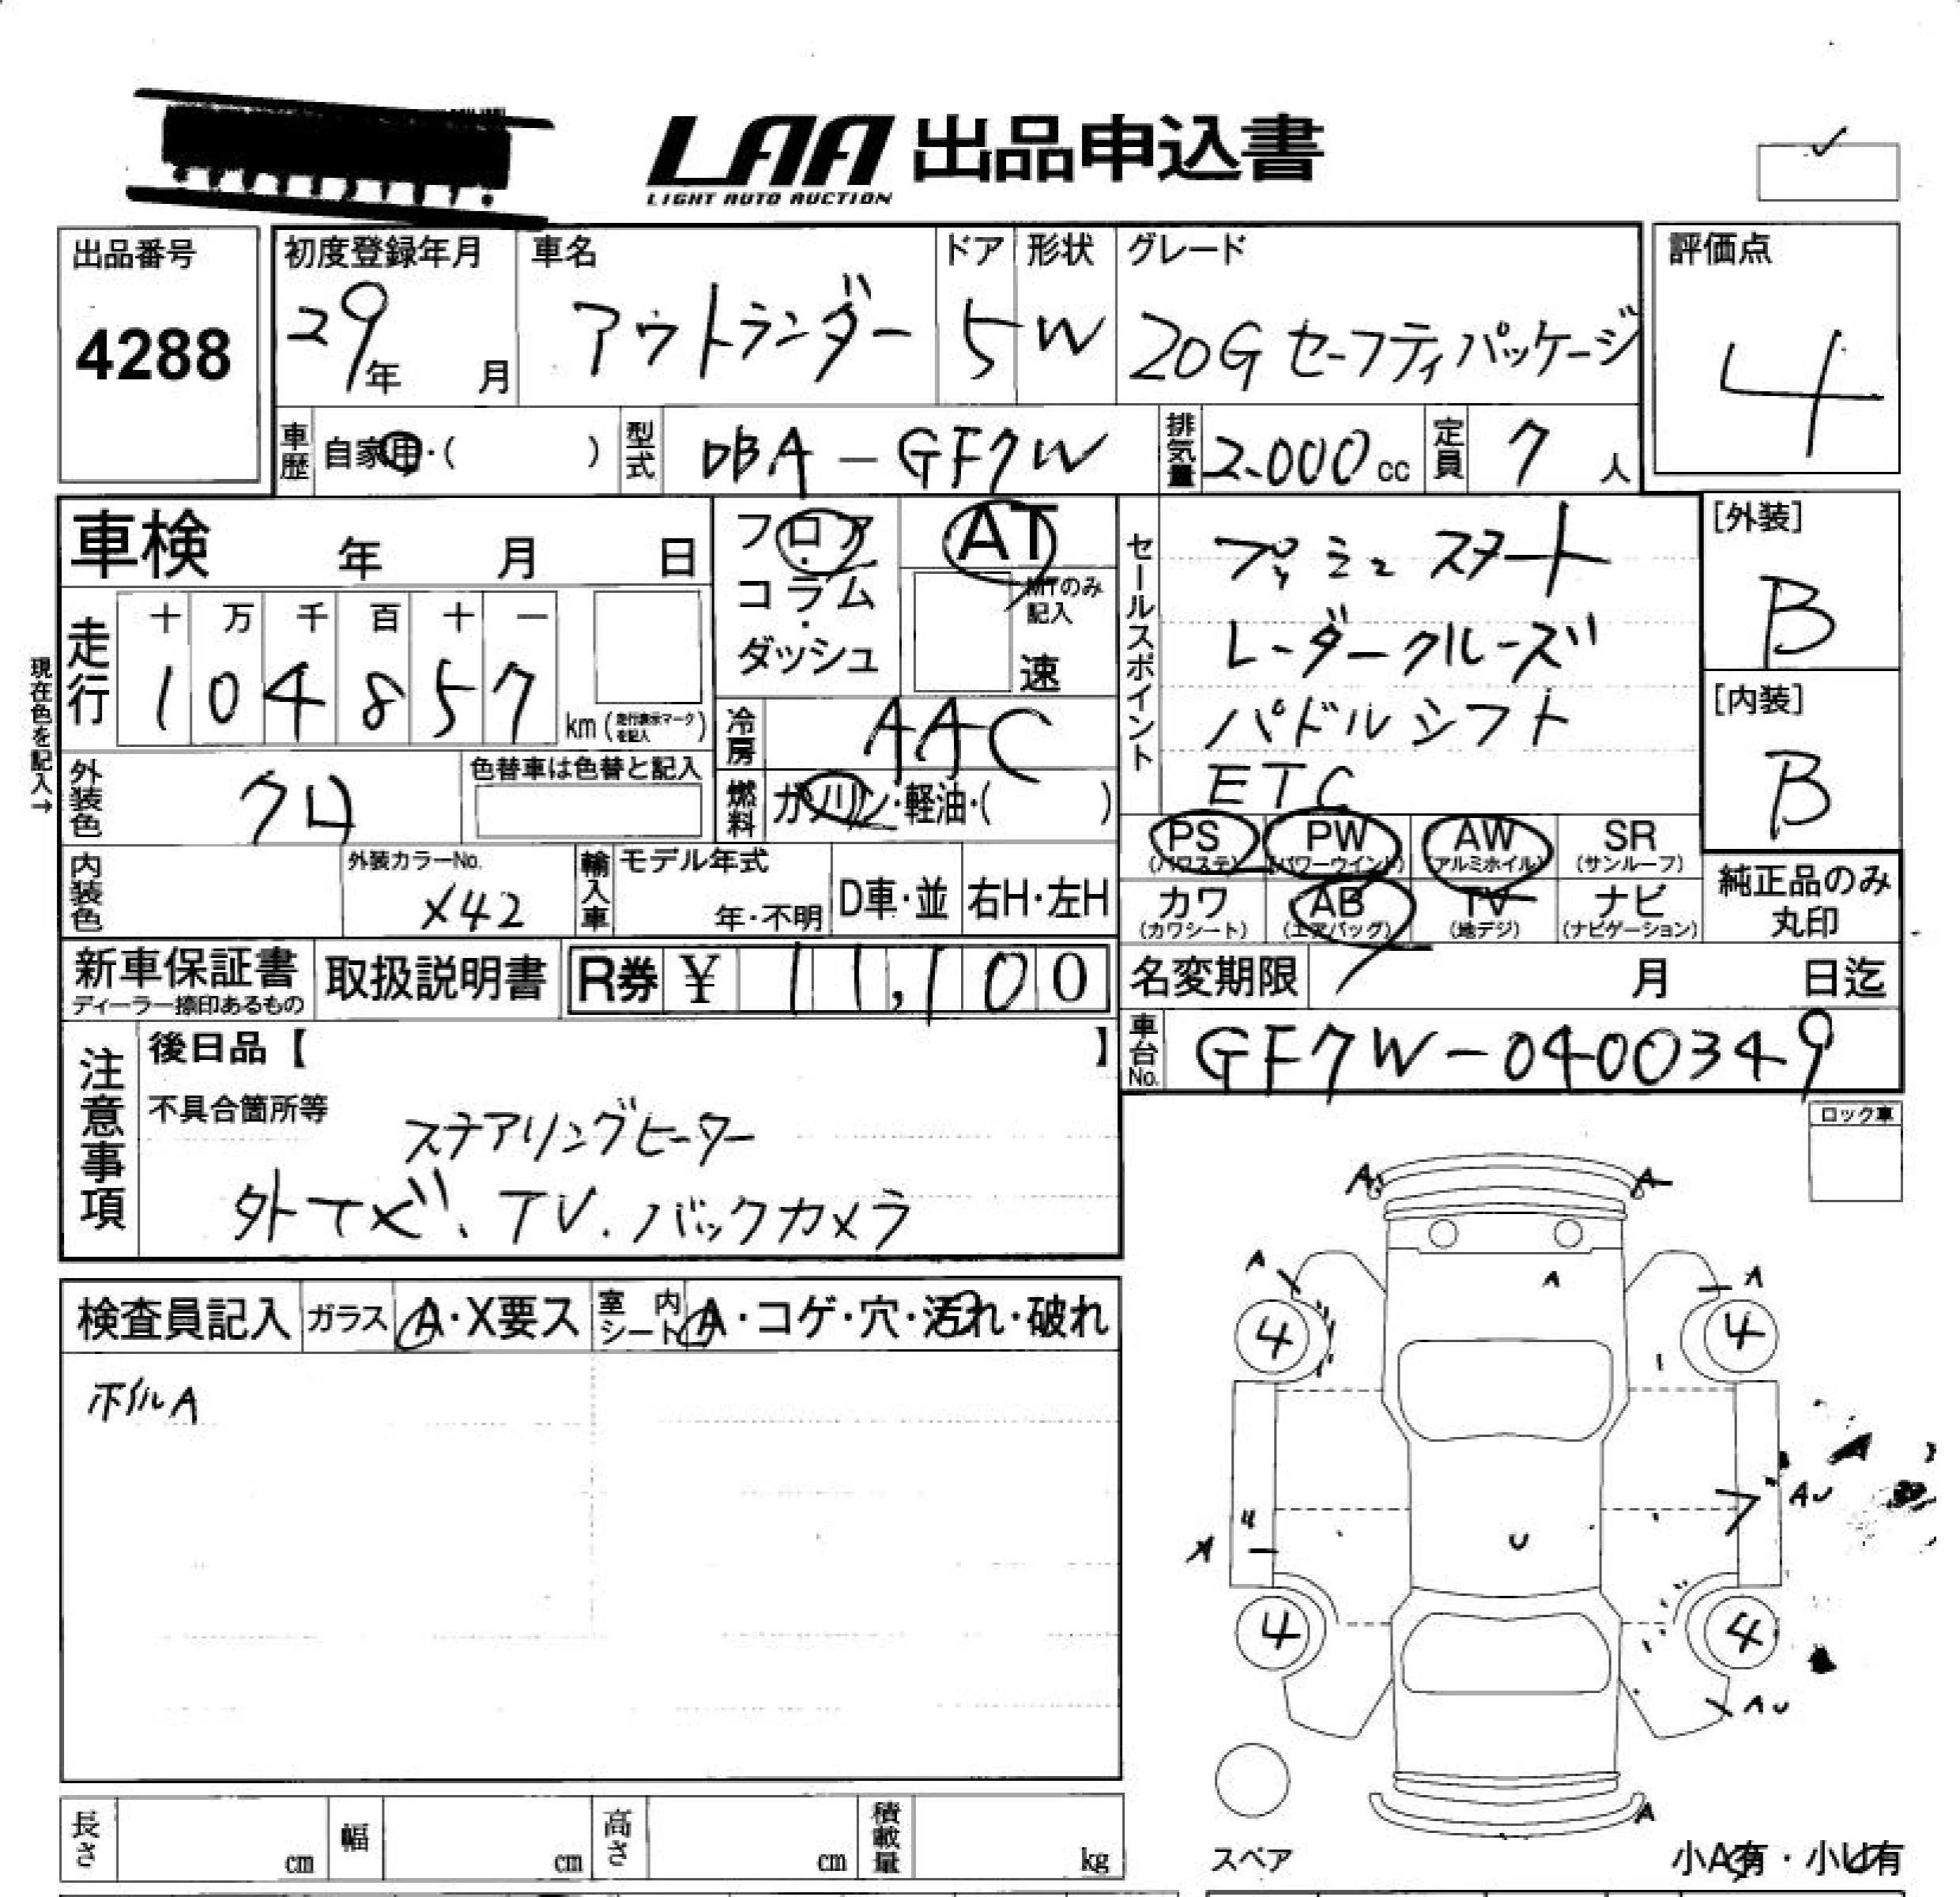 LAA 出品申込書
LIGHT AUTO AUCTION
出品番号
4288
初度登録年月
29年 月
車名
アウトランダー
ドア
5
形状
W
グレード
20G セーフティパッケージ
評価点
4
車歴 自家用・( )
型式 DBA-GF7W
排気量 2.000cc
定員 7人
車検 年 月 日
フロア・コラム・ダッシュ
AT
MTのみ記入
速
セールスポイント
プッシュスタート
レーダークルーズ
パドルシフト
ETC
[外装]
B
[内装]
B
現在色を記入→
走行
十 万 千 百 十 一
1 0 4 8 5 7
km(走行表示マークを記入)
冷房 AAC
外装色 クロ
色替車は色替と記入
燃料 ガソリン・軽油・( )
PS (パワステ)
PW (パワーウインド)
AW (アルミホイル)
SR (サンルーフ)
カワ (カワシート)
AB (エアバッグ)
TV (地デジ)
ナビ (ナビゲーション)
純正品のみ丸印
内装色
外装カラーNo.
X42
輸入車
モデル年式
年・不明
D車・並
右H・左H
新車保証書
ディーラー捺印あるもの
取扱説明書
R券 ¥ 11,100
名変期限 月 日迄
車台No. GF7W-0400349
注意事項
後日品【 】
不具合箇所等
ステアリングヒーター
外ナビ、TV.バックカメラ
ロック車
検査員記入
ガラス A・X要ス
室内シート A・コゲ・穴・汚れ・破れ
ホイルA
A A
A A A
4 4
AU
A U
4 4
AU
A
スペア
小A有・小U有
長さ cm
幅 cm
高さ cm
積載量 kg